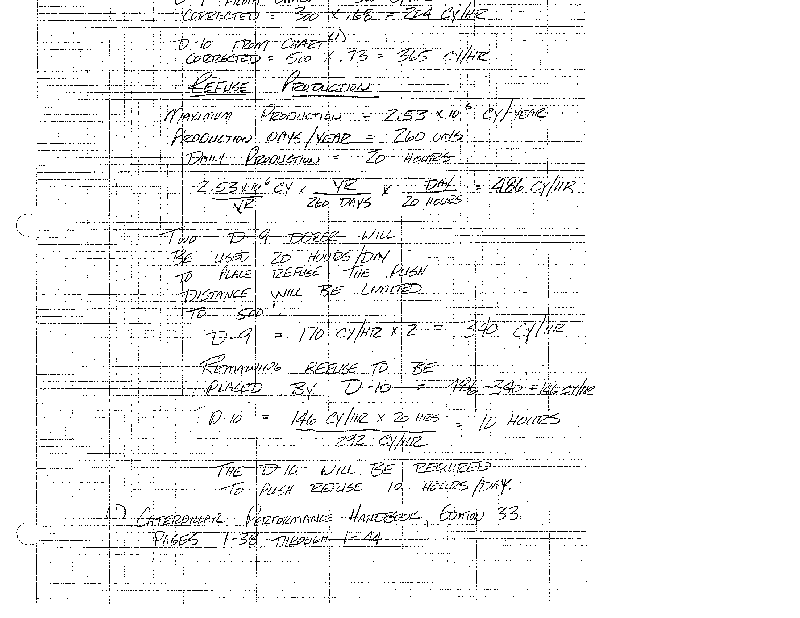 CORRECTED = 300 × .68 = 204 CY/HR
D-10 FROM CHART (1)
CORRECTED = 500 × .73 = 365 CY/HR
REFUSE PRODUCTION
MAXIMUM PRODUCTION = 2.53 × 10⁶ CY/YEAR
PRODUCTION DAYS/YEAR = 260 DAYS
DAILY PRODUCTION = 20 HOURS
2.53 × 10⁶ CY × YR × DAY = 486 CY/HR
YR 260 DAYS 20 HOURS
TWO D-9 DOZER WILL
BE USED 20 HOURS/DAY
TO PLACE REFUSE THE PUSH
DISTANCE WILL BE LIMITED
TO 500'
D-9 = 170 CY/HR × 2 = 340 CY/HR
REMAINING REFUSE TO BE
PLACED BY D-10 = 486-340 = 146 CY/HR
D-10 = 146 CY/HR × 20 HRS = 10 HOURS
292 CY/HR
THE D-10 WILL BE REQUIRED
TO PUSH REFUSE 10 HOURS/DAY.
1) CATERPILLAR PERFORMANCE HANDBOOK, EDITION 33
PAGES 1-38 THROUGH 1-44